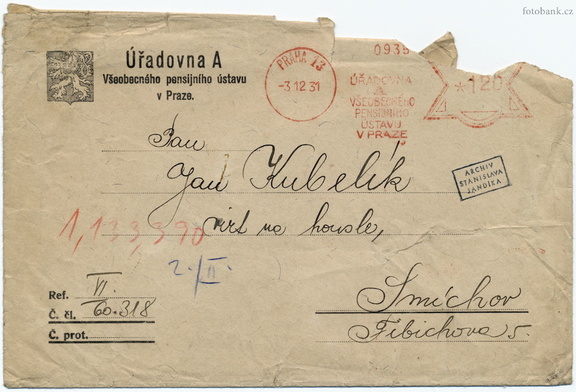 fotobank.cz
Úřadovna A
Všeobecného pensijního ústavu
v Praze.
PRAHA 13
-3.12 31
0935
ÚŘADOVNA
A
VŠEOBECNÉHO
PENSIJNÍHO
ÚSTAVU
V PRAZE
*120
Pan
Jan Kubelík
virt na housle,
ARCHIV
STANISLAVA
JANDÍKA
1,133,370
2./II.
Ref. VI.
Č. čl. 60.318
Č. prot.
Smíchov
Fibichova 5.